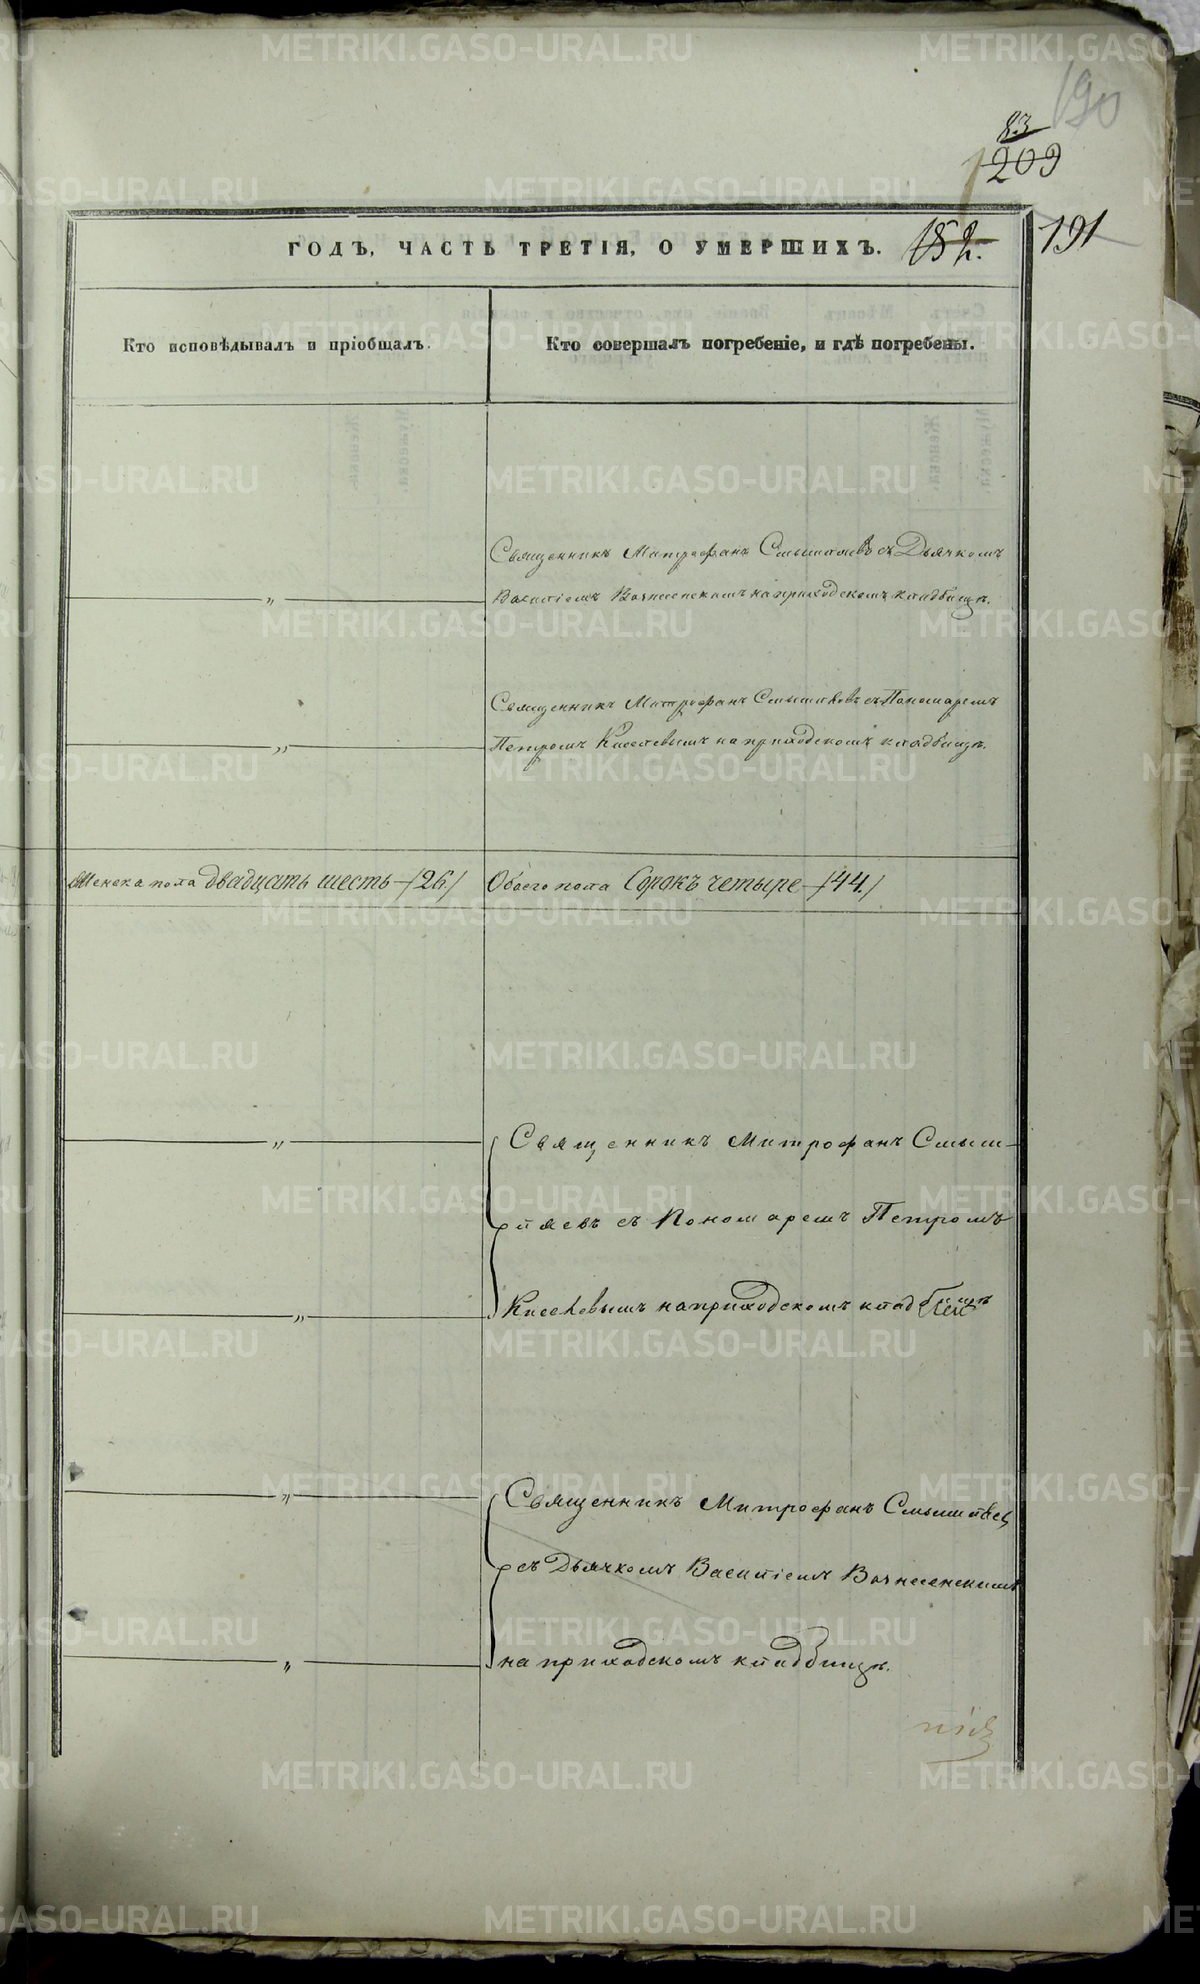 190
83
209
ГОДЪ, ЧАСТЬ ТРЕТІЯ, О УМЕРШИХЪ. 182. 191
Кто исповѣдывалъ и пріобщалъ.
Кто совершалъ погребеніе, и гдѣ погребены.
Священникъ Митрофанъ Смышляевъ съ Дьячкомъ
„ Василіемъ Вознесенскимъ на приходскомъ кладбищѣ.
Священникъ Митрофанъ Смышляевъ съ Пономаремъ
„ Петромъ Киселевымъ на приходскомъ кладбищѣ.
Женска пола двадцать шесть /26./ Обоего пола Сорокъ четыре /44./
„ Священникъ Митрофанъ Смыш-
ляевъ съ Пономаремъ Петромъ
„ Киселевымъ на приходскомъ кладбищѣ
„ Священникъ Митрофанъ Смышляев
съ Дьячкомъ Василіемъ Вознесенскимъ
„ на приходскомъ кладбищѣ.
METRIKI.GASO-URAL.RU